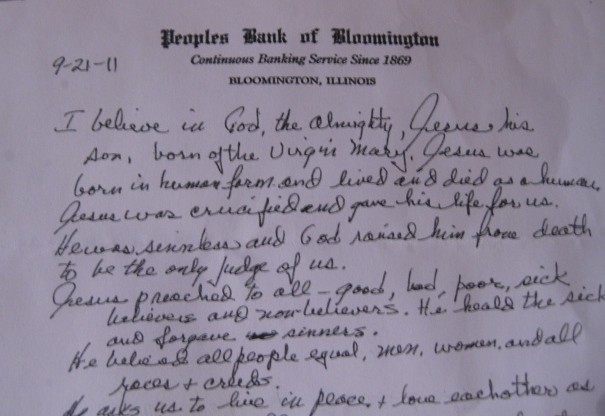 Peoples Bank of Bloomington
Continuous Banking Service Since 1869
BLOOMINGTON, ILLINOIS
9-21-11
I believe in God, the almighty, Jesus his
son, born of the Virgin Mary. Jesus was
born in human form and lived and died as a human.
Jesus was crucified and gave his life for us.
He was sinnless and God raised him from death
to be the only judge of us.
Jesus preached to all - good, bad, poor, sick
believers and nonbelievers. He heald the sick
and forgave sinners.
He believed all people equal, men, women, and all
races + creeds.
He asks us to live in peace, + love eachother as